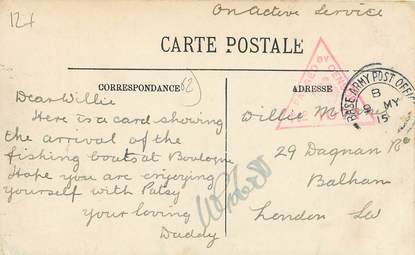 12x
On Active Service
CARTE POSTALE
CORRESPONDANCE
62
ADRESSE
PASSED BY CEN
BASE ARMY POST OFFICE
8
MY
15
Dear Willie
Here is a card showing
the arrival of the
fishing bouts at Boulogne
Hope you are enjoying
yourself with Patsy
Your loving
Daddy
Willie
29 Dagnan Rd
Balham
London SW